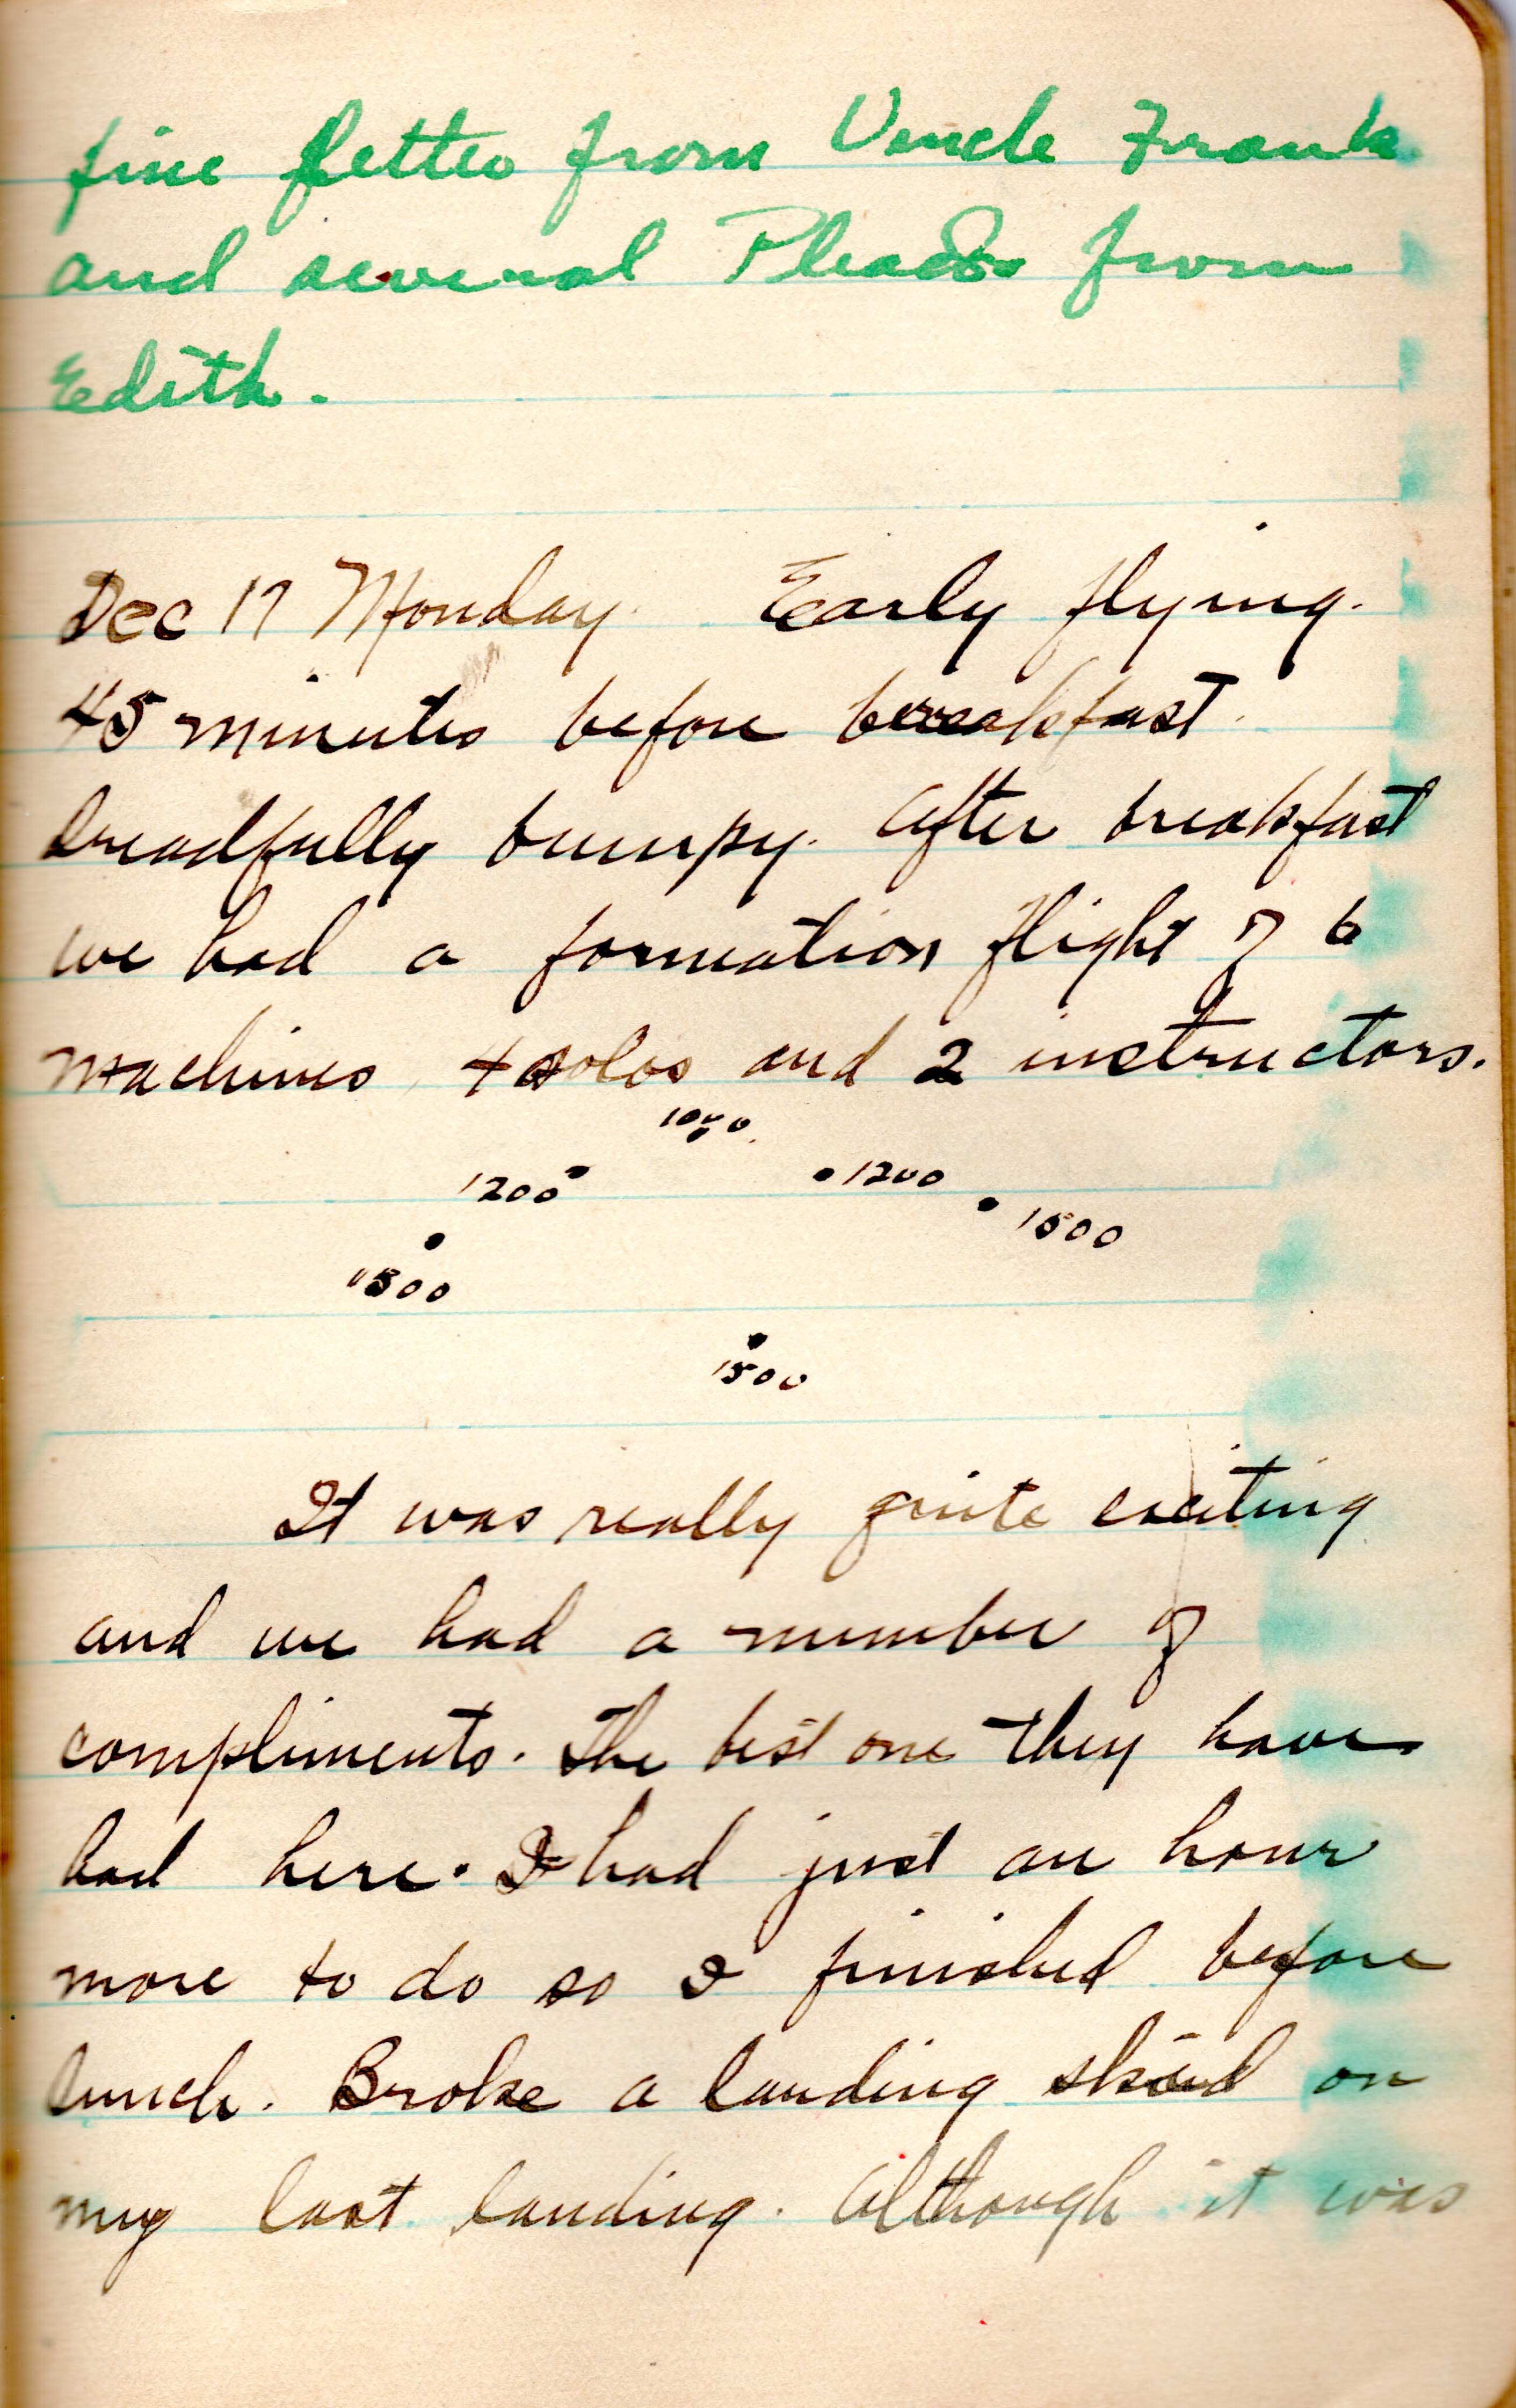 fine letter from Uncle Frank
and several from
Edith.
Dec 17 Monday. Early flying.
45 minutes before breakfast.
Dreadfully bumpy. After breakfast
we had a formation flight of 6
machines, 4 solos and 2 instructors.
1000
1200 1200
1500
1500
1500
It was really quite exciting
and we had a number of
compliments. The best one they have
had here. I had just an hour
more to do so I finished before
lunch. Broke a landing skid on
my last landing. Although it was